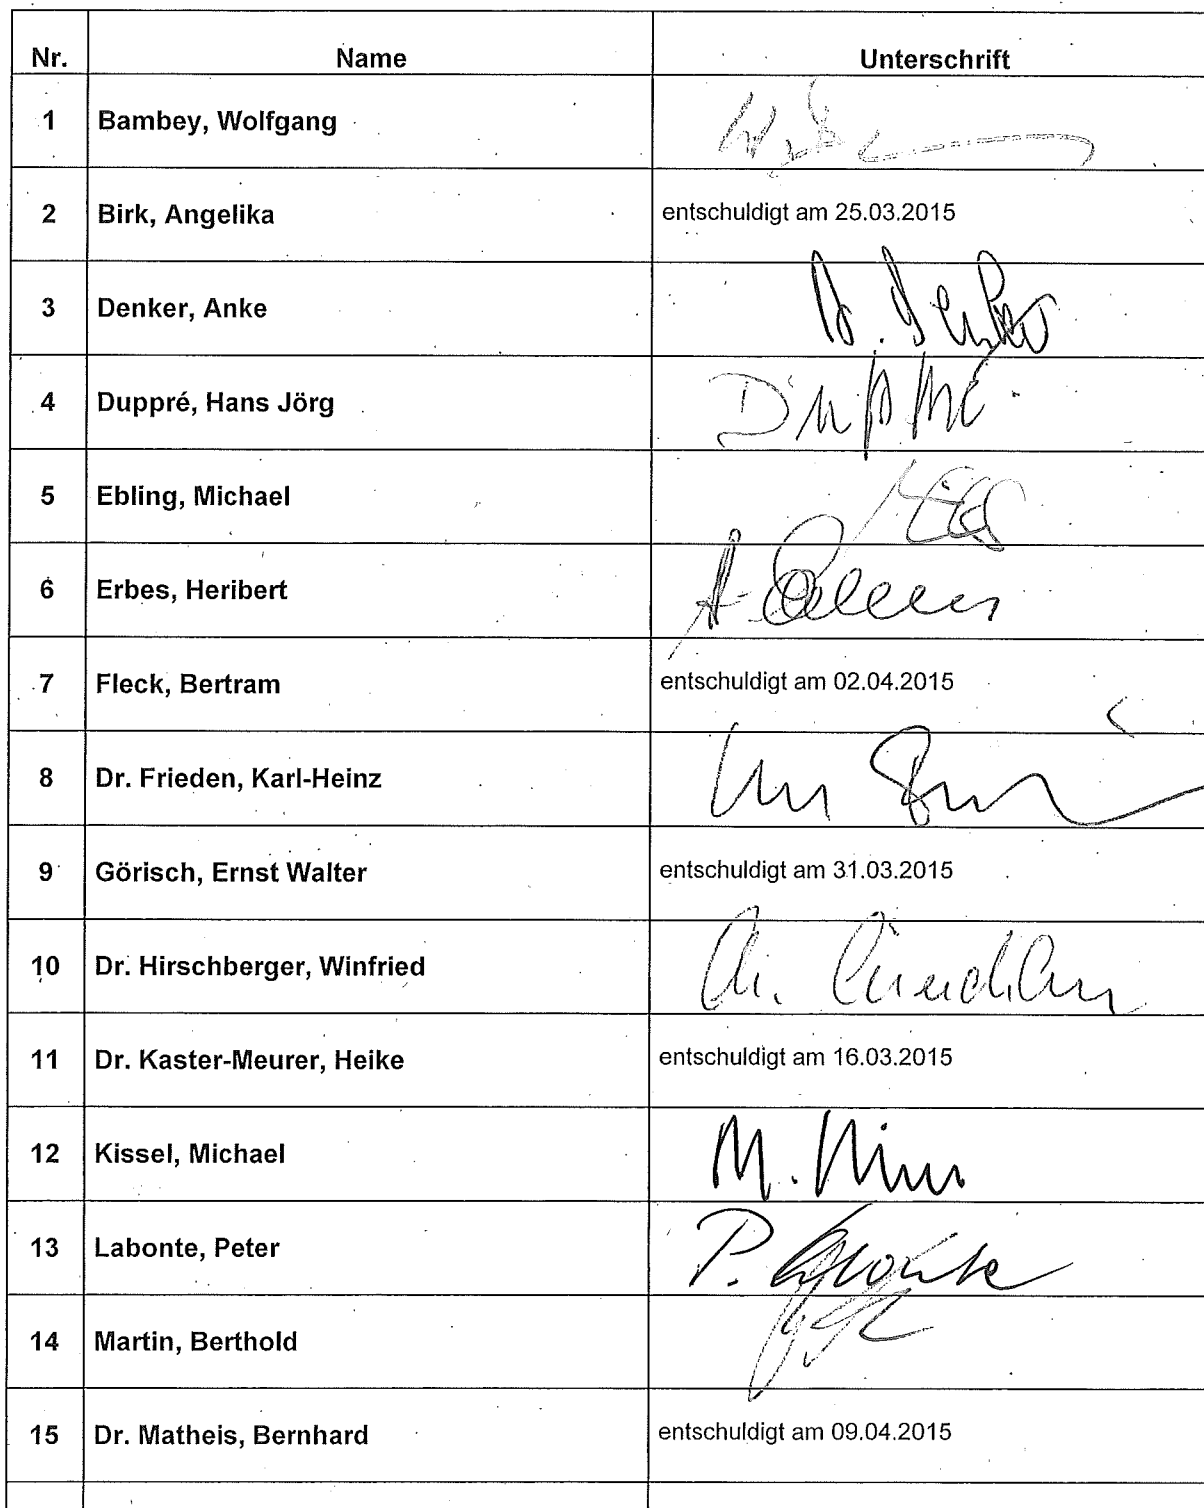 Nr. Name Unterschrift
1 Bambey, Wolfgang
2 Birk, Angelika entschuldigt am 25.03.2015
3 Denker, Anke A. Denker
4 Duppré, Hans Jörg Duppré
5 Ebling, Michael
6 Erbes, Heribert
7 Fleck, Bertram entschuldigt am 02.04.2015
8 Dr. Frieden, Karl-Heinz
9 Görisch, Ernst Walter entschuldigt am 31.03.2015
10 Dr. Hirschberger, Winfried
11 Dr. Kaster-Meurer, Heike entschuldigt am 16.03.2015
12 Kissel, Michael M.
13 Labonte, Peter P. Labonte
14 Martin, Berthold
15 Dr. Matheis, Bernhard entschuldigt am 09.04.2015